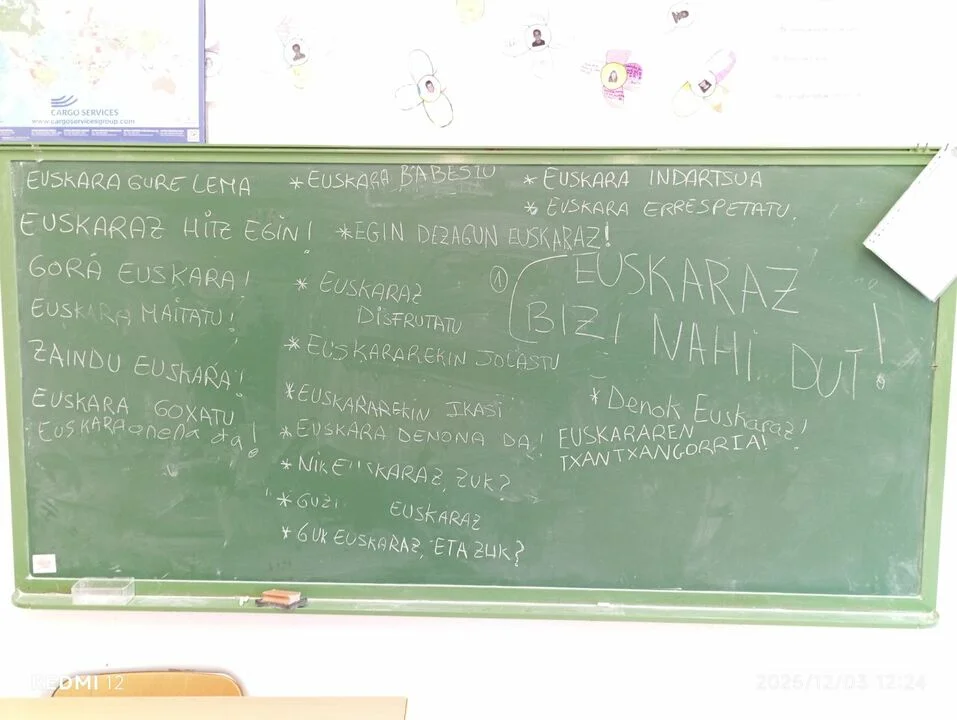 CARGO SERVICES
www.cargoservicesgroup.com
EUSKARA GURE LEMA
EUSKARAZ HITZ EGIN!
GORA EUSKARA!
EUSKARA MAITATU!
ZAINDU EUSKARA!
EUSKARA GOXATU
EUSKARA onena da!
* EUSKARA BABESTU
* EGIN DEZAGUN EUSKARAZ!
* EUSKARAZ
DISFRUTATU
* EUSKARAREKIN JOLASTU
* EUSKARAREKIN IKASI
* EUSKARA DENONA DA!
* NIK EUSKARAZ, ZUK?
* GUZI EUSKARAZ
* GUK EUSKARAZ, ETA ZUK?
* EUSKARA INDARTSUA
* EUSKARA ERRESPETATU.
1 EUSKARAZ
BIZI NAHI DUT!
* Denok Euskaraz!
EUSKARAREN
TXANTXANGORRIA!
REDMI 12
2025/12/03 12:24